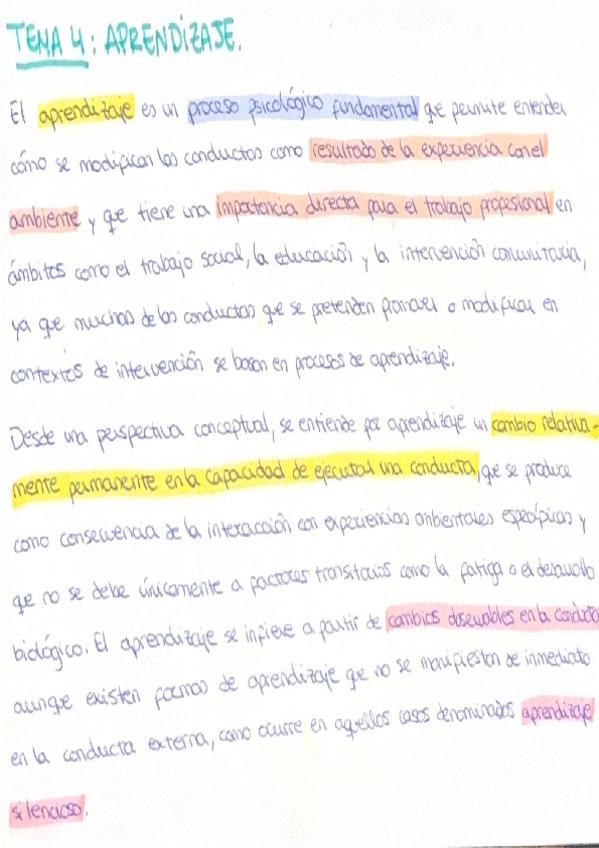 TEMA 4: APRENDIZAJE.
El aprendizaje es un proceso psicológico fundamental que permite entender
cómo se modifican las conductas como resultado de la experiencia con el
ambiente y que tiene una importancia directa para el trabajo profesional en
ámbitos como el trabajo social, la educación y la intervención comunitaria,
ya que muchas de las conductas que se pretenden promover o modificar en
contextos de intervención se basan en procesos de aprendizaje.
Desde una perspectiva conceptual, se entiende por aprendizaje un cambio relativa-
mente permanente en la capacidad de ejecutar una conducta, que se produce
como consecuencia de la interacción con experiencias ambientales específicas y
que no se debe únicamente a factores transitorios como la fatiga o el desarrollo
biológico. El aprendizaje se infiere a partir de cambios observables en la conducta
aunque existen formas de aprendizaje que no se manifiestan de inmediato
en la conducta externa, como ocurre en aquellos casos denominados aprendizaje
silencioso.